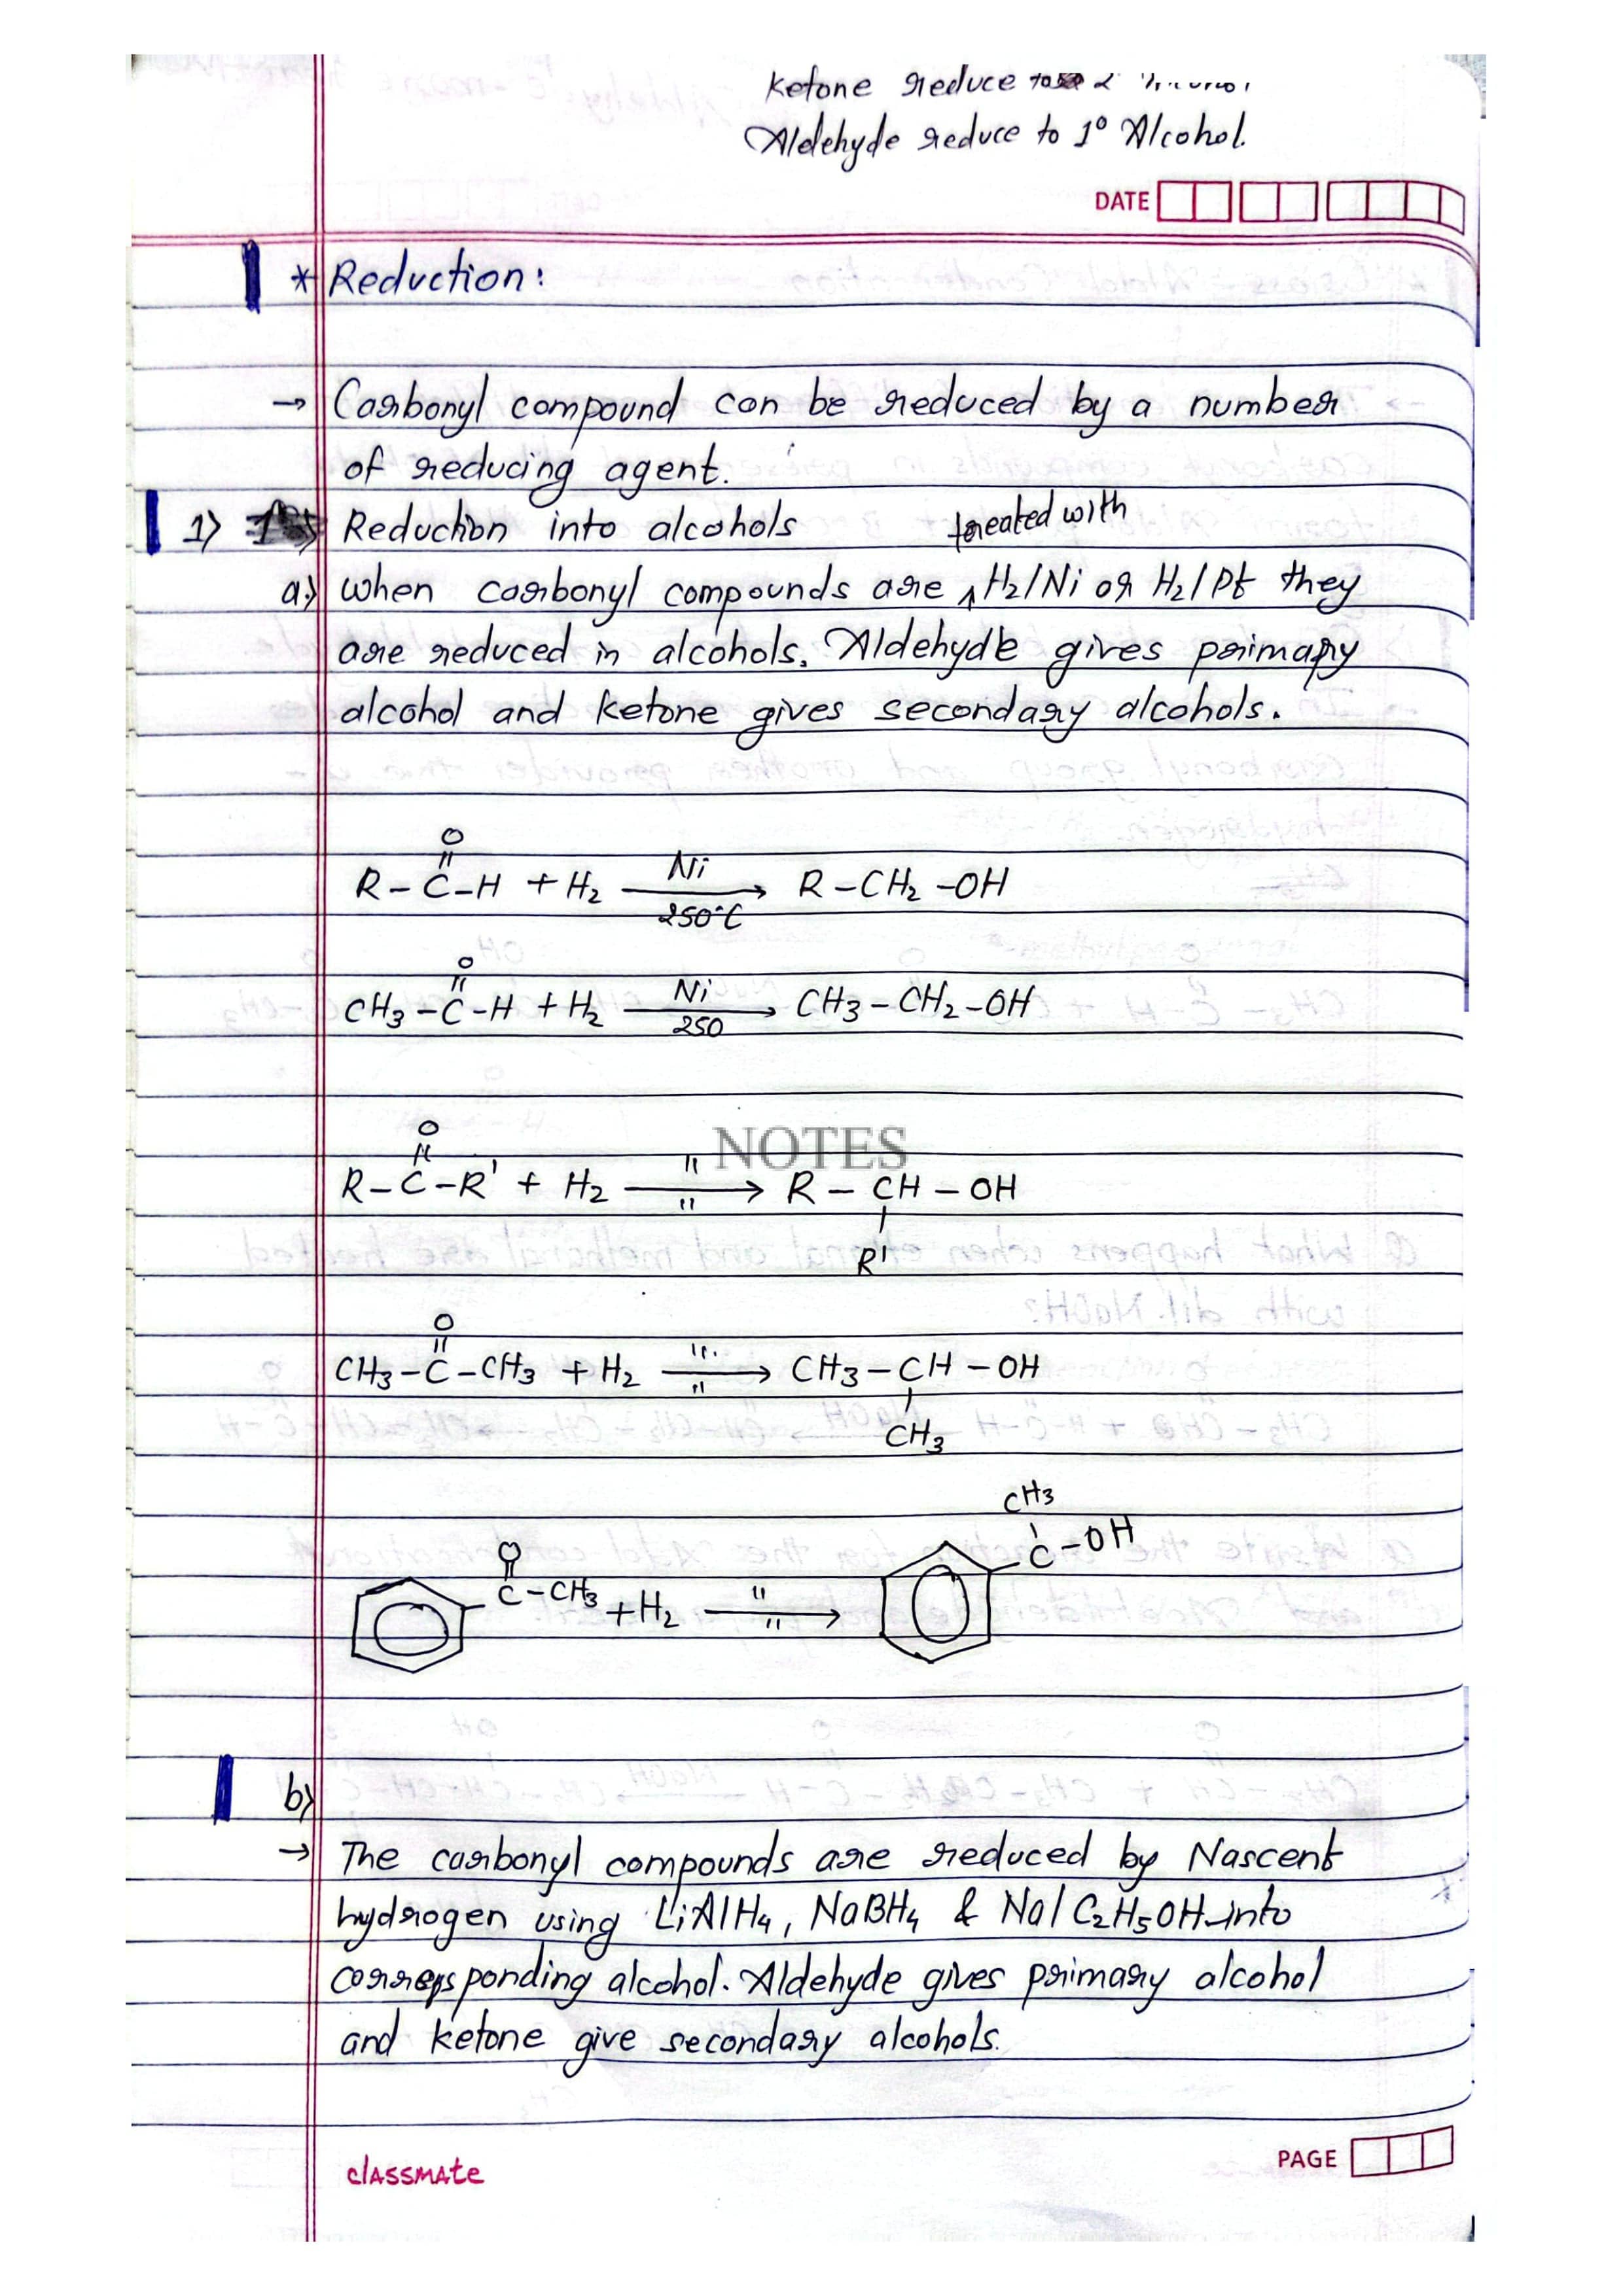 Ketone reduce to 2
Aldehyde reduce to 1° Alcohol.
DATE
* Reduction:
→ Carbonyl compound can be reduced by a number
of reducing agent.
1) Reduction into alcohols treated with
a) When carbonyl compounds are ^ H₂/Ni or H₂/Pt they
are reduced in alcohols. Aldehyde gives primary
alcohol and ketone gives secondary alcohols.
O
||
R-C-H + H₂ Ni 250°C → R-CH₂-OH
O
||
CH₃-C-H + H₂ Ni 250 → CH₃-CH₂-OH
NOTES
O
||
R-C-R' + H₂ " " → R-CH-OH
R'
O
||
CH₃-C-CH₃ + H₂ " " → CH₃-CH-OH
CH₃
CH₃
O
||
C-CH₃ + H₂ " " → C-OH
b)
→ The carbonyl compounds are reduced by Nascent
hydrogen using LiAlH₄, NaBH₄ & Na/C₂H₅OH into
corresponding alcohol. Aldehyde gives primary alcohol
and ketone give secondary alcohols.
classmate
PAGE